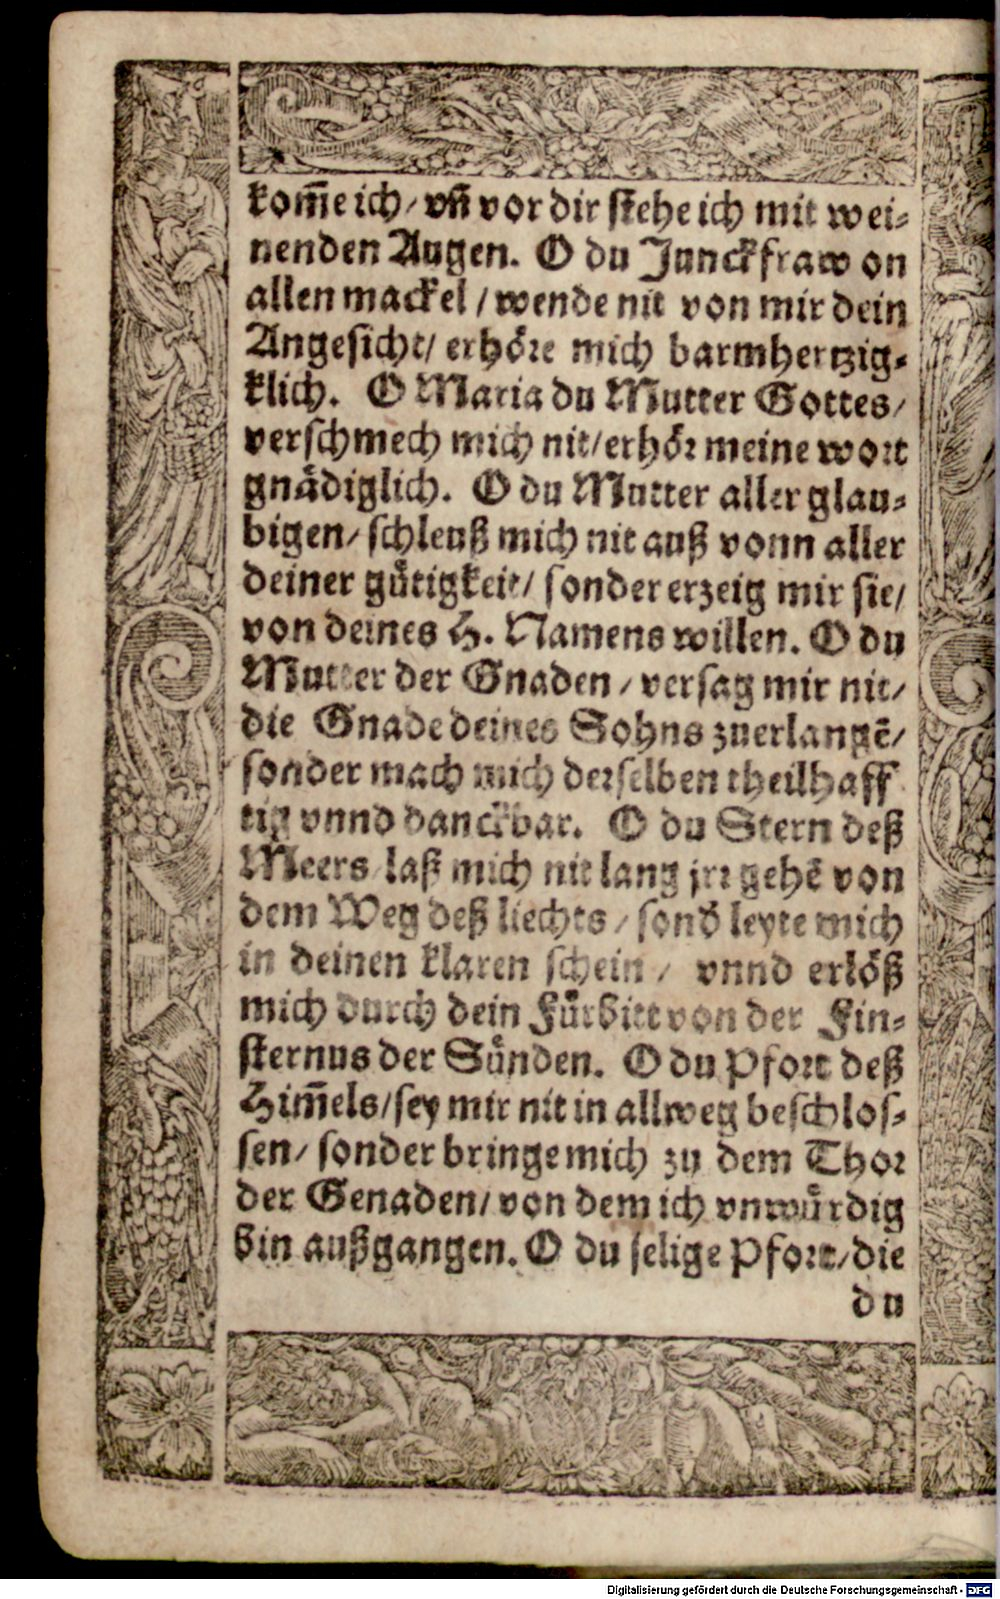 kom̃e ich / vñ vor dir stehe ich mit wei-
nenden Augen. O du Junckfraw on
allen mackel / wende nit von mir dein
Angesicht / erhöre mich barmhertzig-
klich. O Maria du Mutter Gottes /
verschmech mich nit / erhör meine wort
gnädiglich. O du Mutter aller glau-
bigen / schleuß mich nit auß vonn aller
deiner gütigkeit / sonder erzeig mir sie /
von deines H. Namens willen. O du
Mutter der Gnaden / versag mir nit /
die Gnade deines Sohns zuerlangẽ /
sonder mach mich derselben theilhaff
tig vnnd danckbar. O du Stern deß
Meers laß mich nit lang jrr gehẽ von
dem Weg deß liechts / sond̃ leyte mich
in deinen klaren schein / vnnd erlöß
mich durch dein Fürbitt von der Fin-
sternus der Sünden. O du Pfort deß
Him̃els / sey mir nit in allweg beschlos-
sen / sonder bringe mich zu dem Thor
der Genaden / von dem ich vnwürdig
bin außgangen. O du selige Pfort / die
du
Digitalisierung gefördert durch die Deutsche Forschungsgemeinschaft - DFG